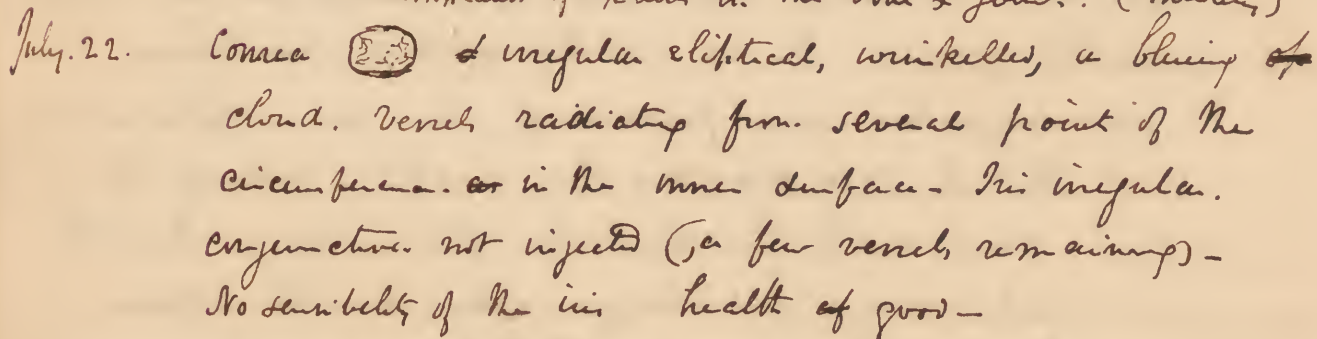 of the
July. 22. Cornea & irregular eliptical, wrinkelled, a blueing of
cloud. vessels radiating from several point of the
circumference. or in the inner surface - Iris irregular.
conjunctiva not injected (, a few vessels remaining) -
No sensibility of the iris health of good -